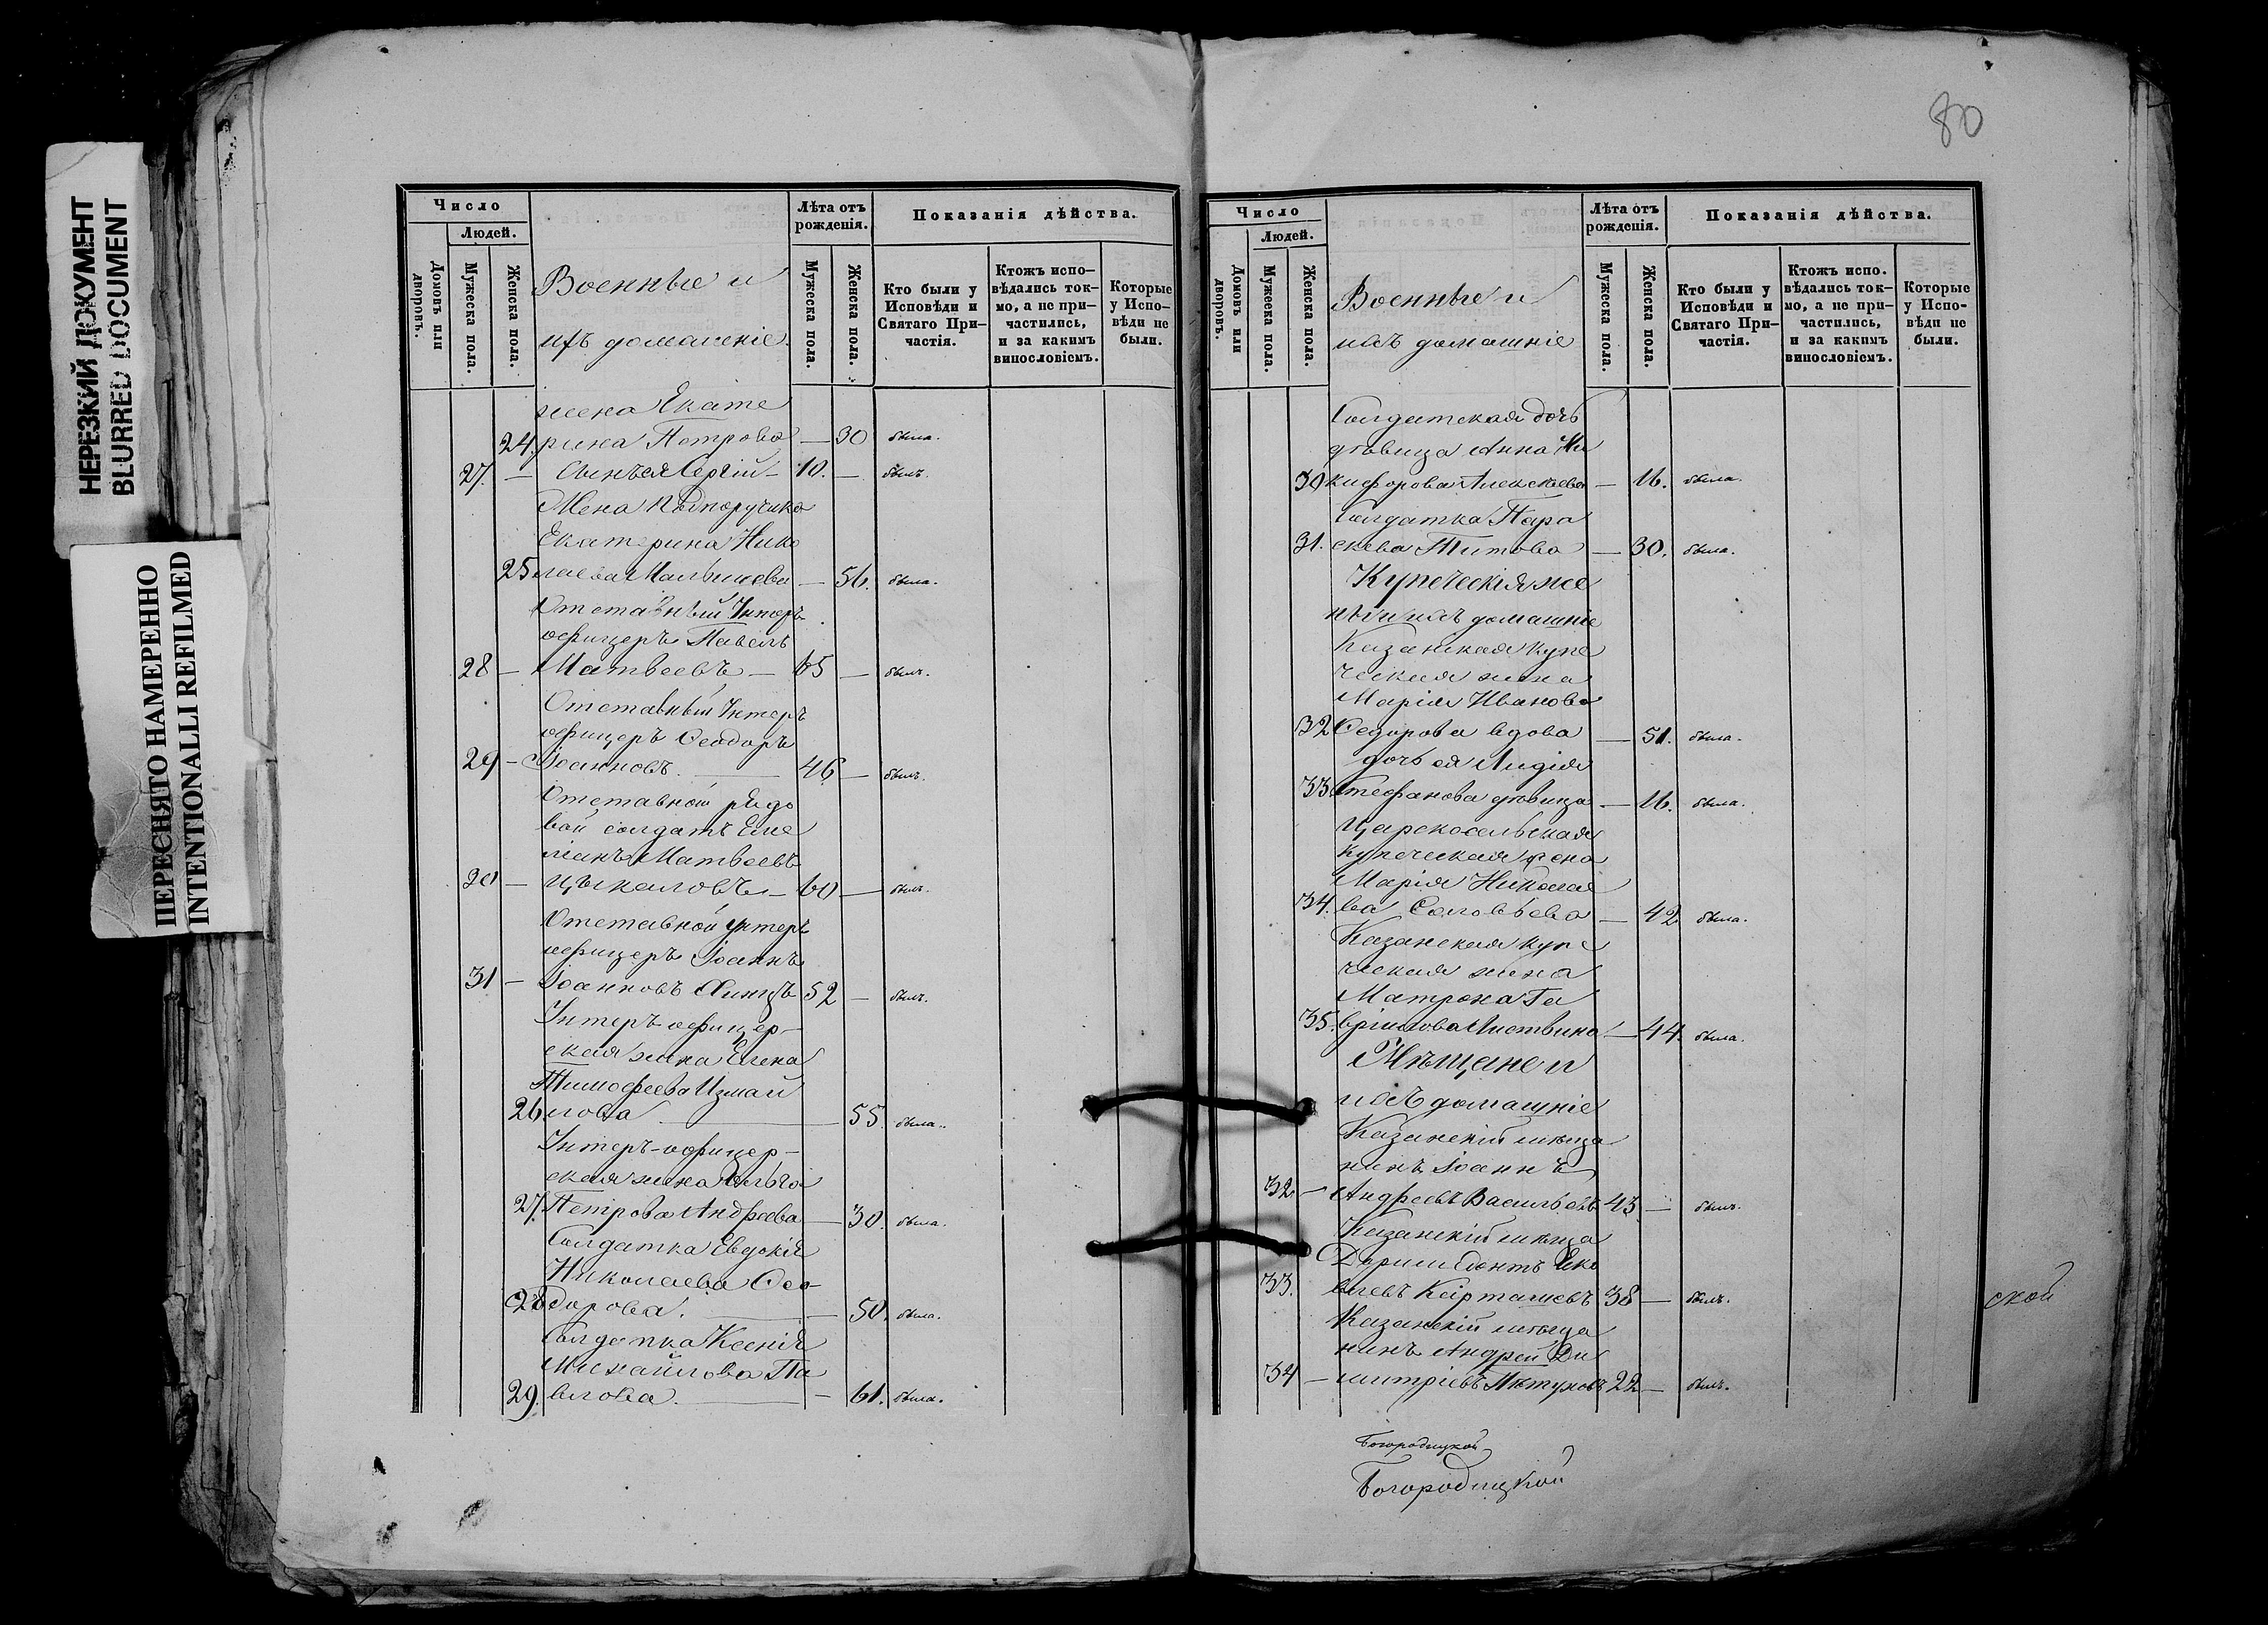 НЕРЕЗКИЙ ДОКУМЕНТ
BLURRED DOCUMENT
ПЕРЕСНЯТО НАМЕРЕННО
INTENTIONALLI REFILMED
Число
Людей.
Домовъ или дворовъ.
Мужеска пола.
Женска пола.
Военные и
ихъ домашніе.
Лѣта отъ рожденія.
Мужеска пола.
Женска пола.
Показанія дѣйства.
Кто были у Исповѣди и Святаго Причастія.
Ктожъ исповѣдались токмо, а не причастились, и за какимъ винословіемъ.
Которые у Исповѣди не были.
жена Екате
24. рина Петрова — 30 была.
27. — Сынъ ея Сергій — 10. — былъ.
Жена Подпоручика
Екатерина Нико
25 лаева Малышева — 56. была.
Отставный Унтеръ
офицеръ Павелъ
28 — Матвеевъ — 65 — былъ.
Отставный Унтеръ
офицеръ Ѳеодоръ
29 — Іоанновъ. — 46 — былъ.
Отставной рядо
вой солдатъ Еме
ліанъ Матвеевъ
30 — Цыкаловъ — 60 — былъ.
Отставной унтеръ
офицеръ Іоаннъ
31 — Іоанновъ 52 — былъ.
Унтеръ-офицер-
ская жена Елена
Тимофеева Измай
26. лова — 55. была.
Унтеръ-офицер-
ская жена Ольга
27. Петрова Андреева — 30. была.
Солдатка Евдокія
Николаева Ѳео-
28 дорова. — 50. была.
Солдатка Ксенія
Михайлова Па
29. влова. — 61. была.
80
Число
Людей.
Домовъ или дворовъ.
Мужеска пола.
Женска пола.
Военные и
ихъ домашніе
Лѣта отъ рожденія.
Мужеска пола.
Женска пола.
Показанія дѣйства.
Кто были у Исповѣди и Святаго Причастія.
Ктожъ исповѣдались токмо, а не причастились, и за какимъ винословіемъ.
Которые у Исповѣди не были.
Солдатская дочь
дѣвица Анна Ни
30 кифорова Алексѣева — 16. была.
Солдатка Пара
31. скева Титова — 30. была.
Купеческія же
ны и ихъ домашніе
Казанская купе
ческая жена
Марія Иванова
32 Ѳедорова вдова — 51. была.
дочь ея Лидія
33 Стефанова дѣвица — 16. была.
Царскосельская
купеческая жена
Марія Николае
34. ва Соловьева — 42 была.
Казанская купе
ческая жена
Матрона Га
35. вріилова Листвина — 44. была.
Мѣщане и
ихъ домашніе
Казанскій мѣща
нинъ Іоаннъ
32 — Андреевъ Васильевъ 43. — былъ.
Казанскій мѣща
Доримедонтъ Яко
33. влевъ Карташевъ 38 — былъ.
Казанскій мѣща
нинъ Андрей Ди
34 — митріевъ Пѣтуховъ 22 — былъ.
ской
Богородицкой
Богородицкой